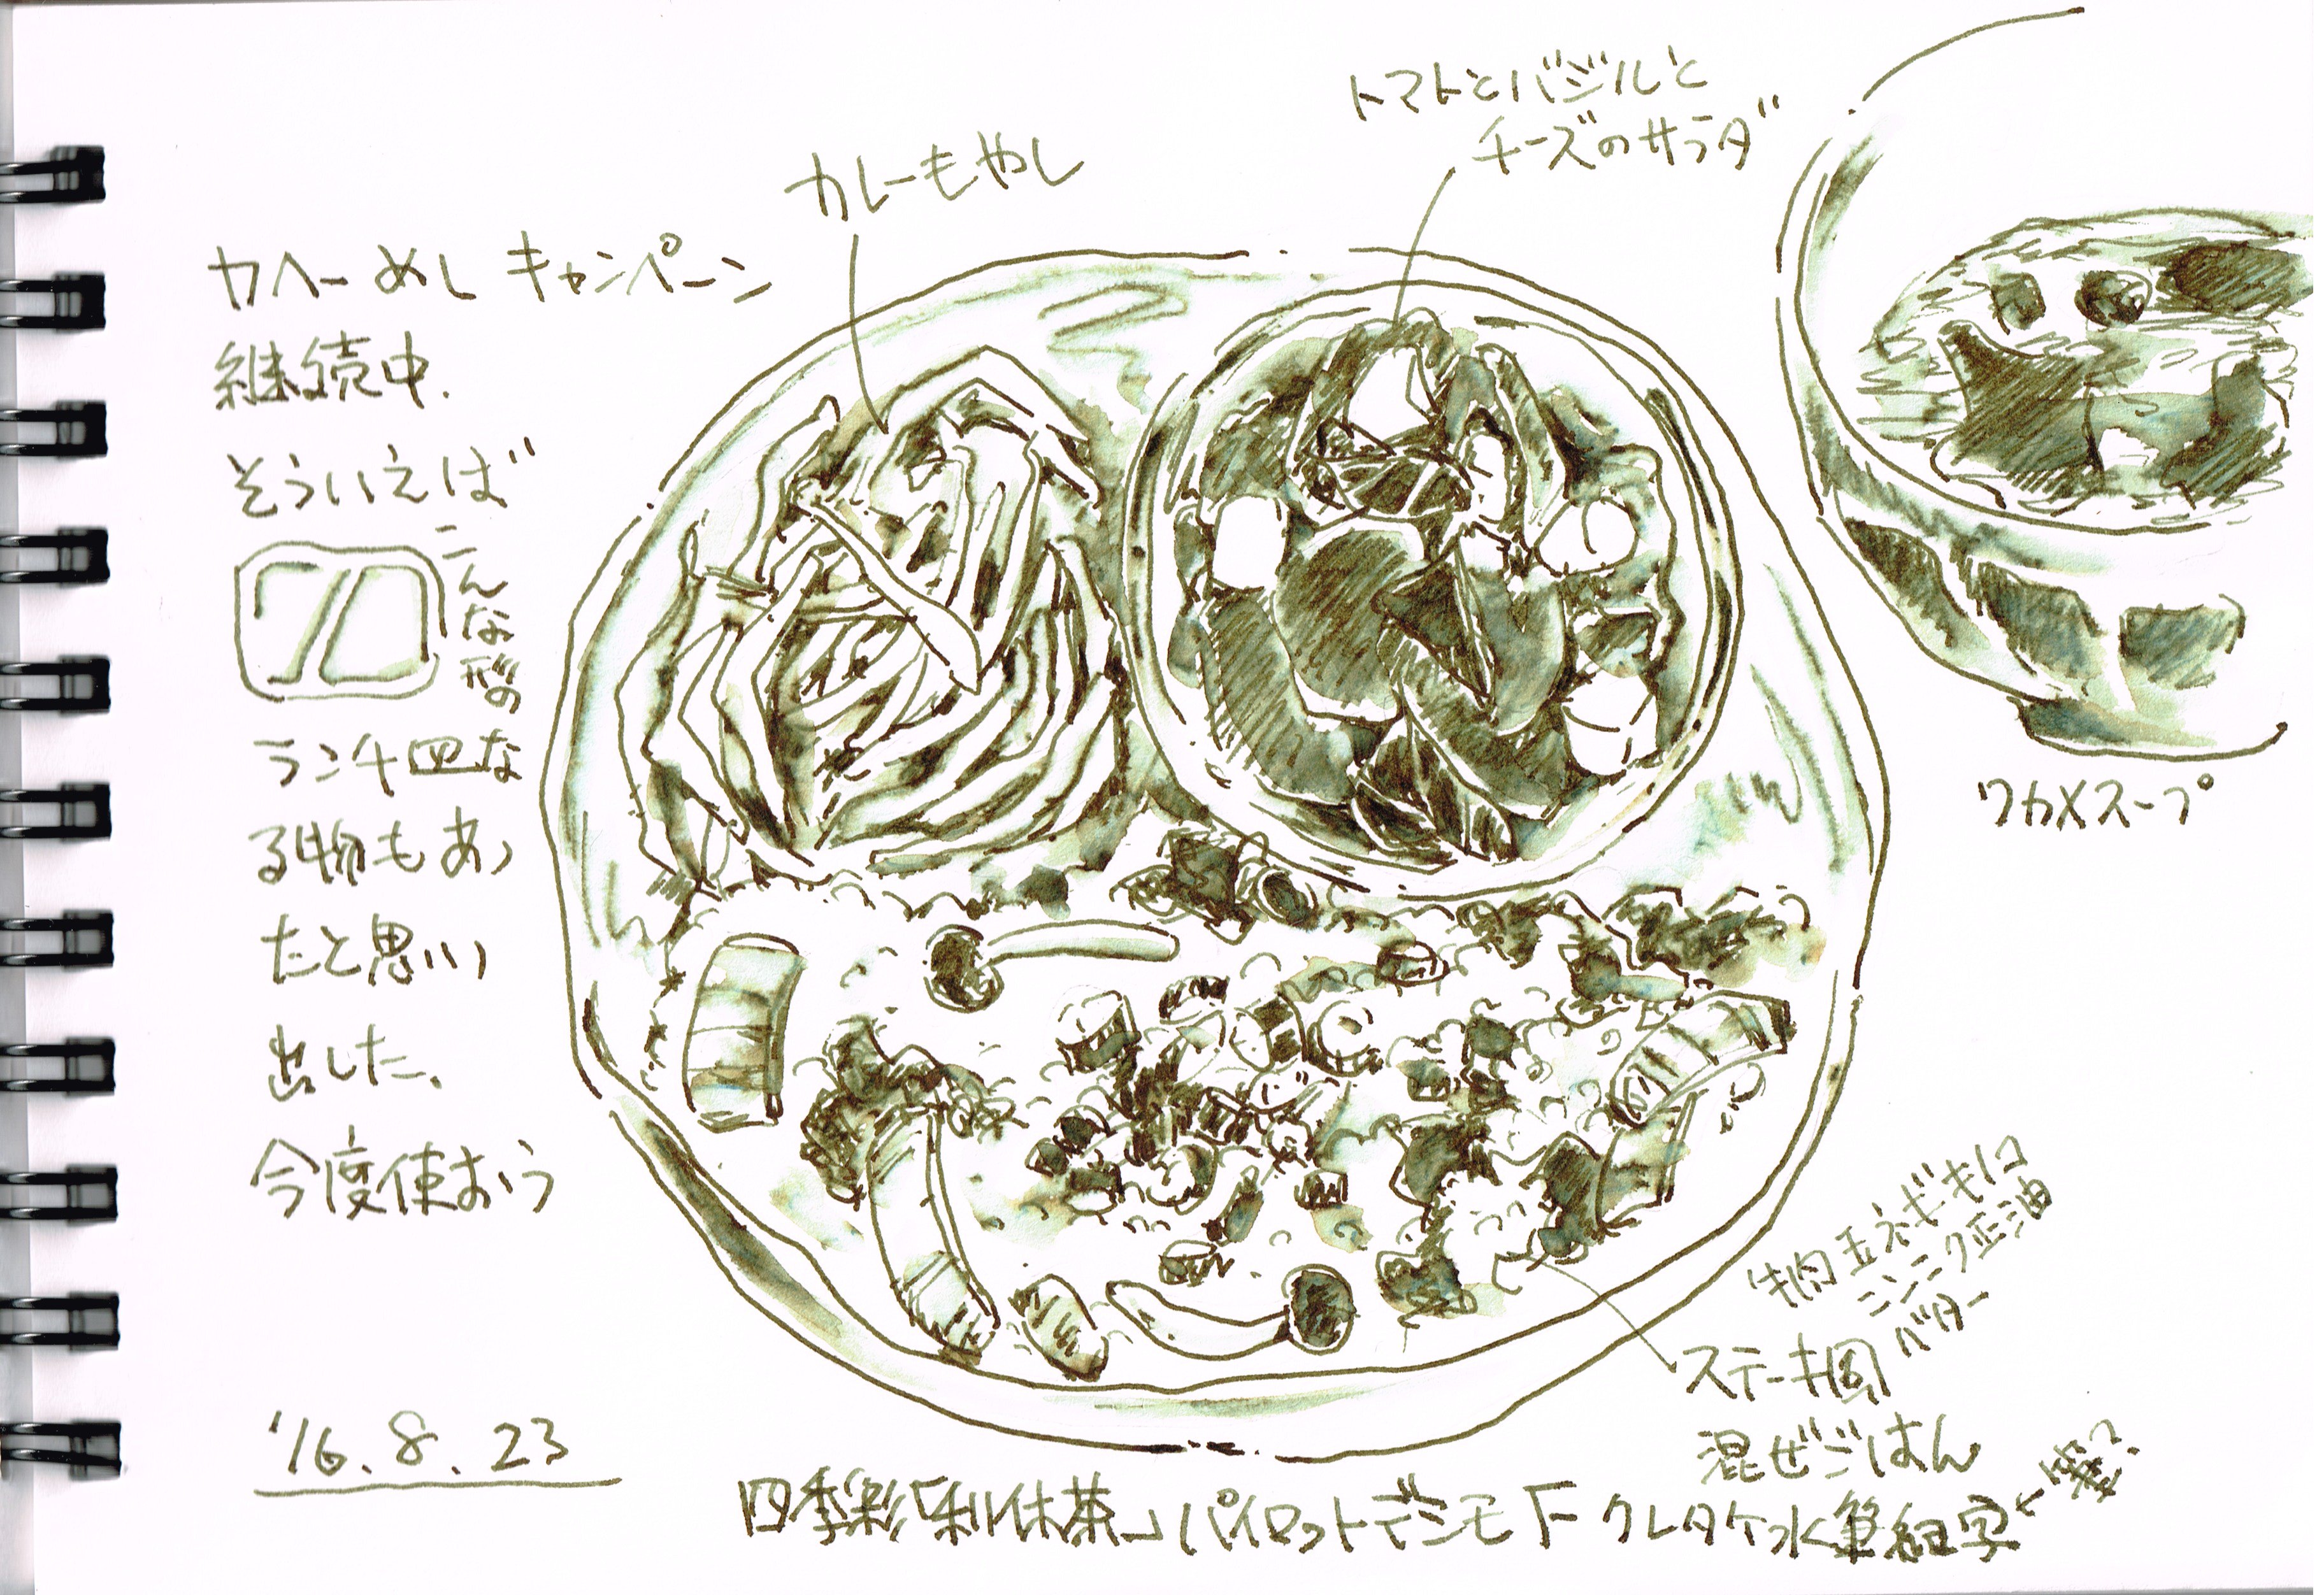 トマトとバジルと
チーズのサラダ
カレーもやし
カヘーめし キャンペーン
継続中.
そういえば
こんな形の
ランチ皿な
る物もあっ
たと思い
出した、
今度使おう
ワカメスープ
牛肉 玉ネギ キノコ
ニンニク 正油
バター
ステーキ風
混ぜごはん
'16.8.23
四季彩「利休茶」パイロットデシモ F クレタケ水筆細字←